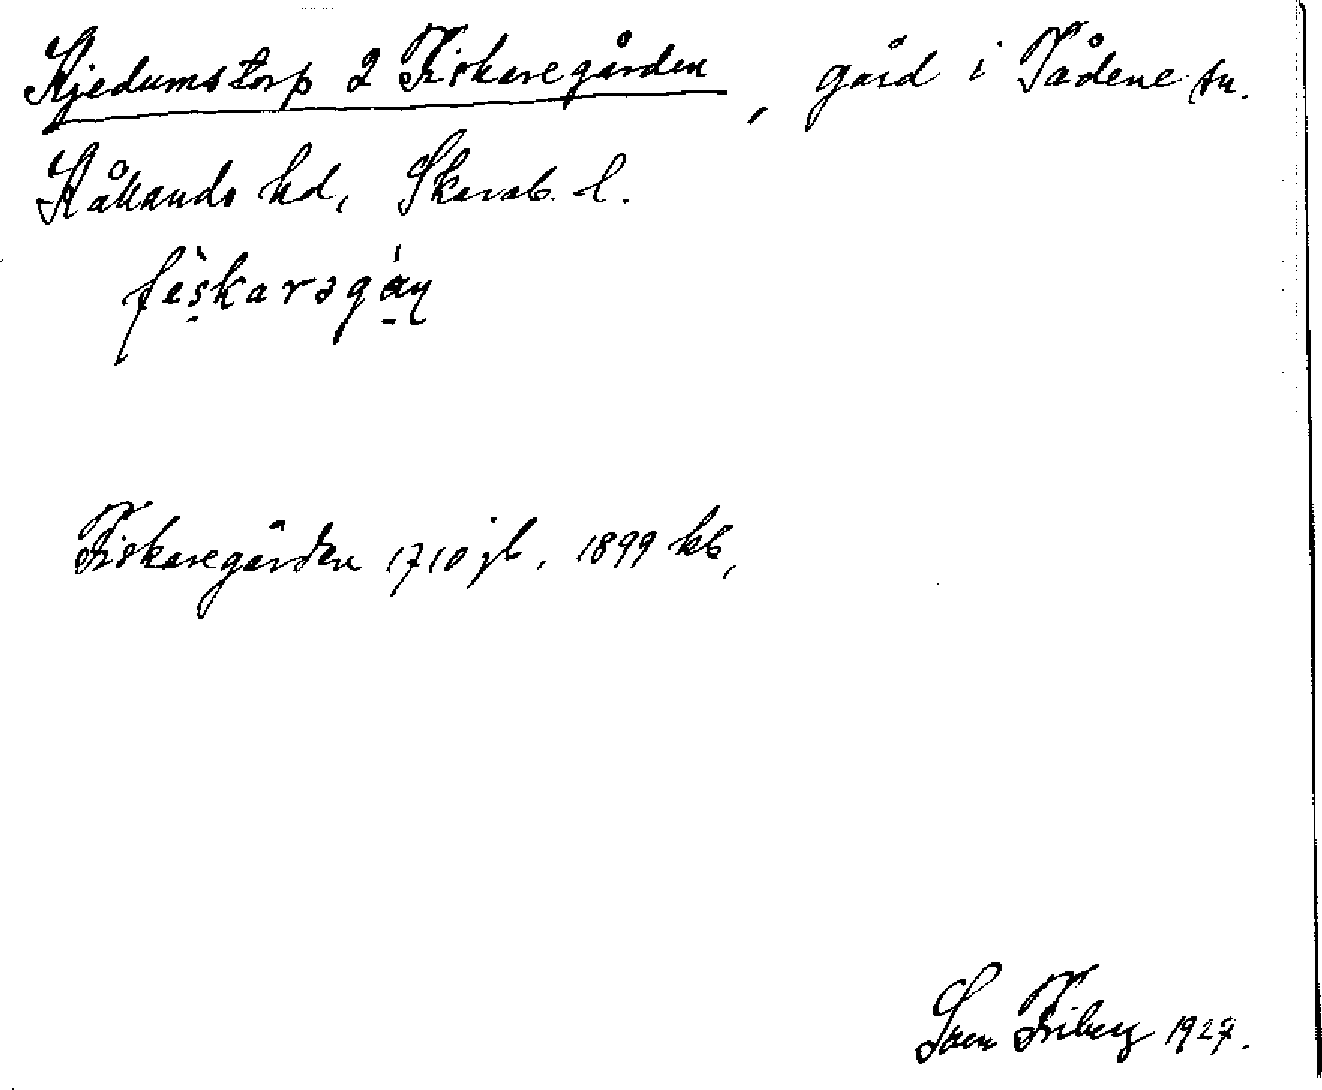 Kjedumstorp 2 Fiskaregården, gård i Tådene sn.
Kållands hd, Skarab. l.
fèskarəgáɳ
Fiskaregården 1710 jb. 1899 kb,
Sven Friberg 1927.